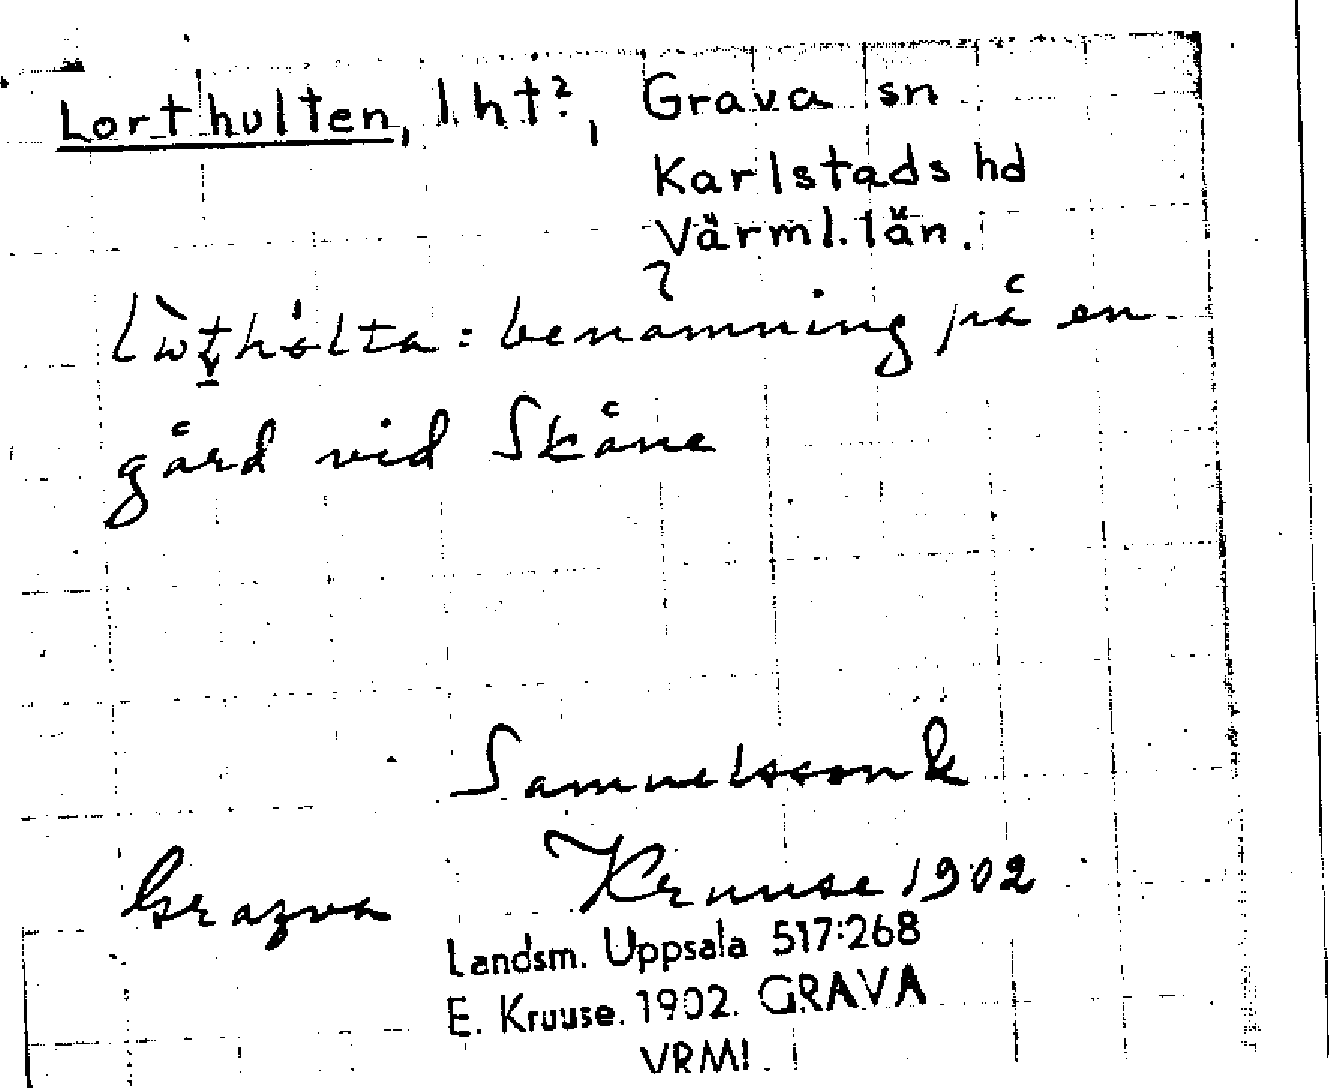 Lorthulten, l.ht?, Grava sn
Karlstads hd
Värml. län.
benämning på en
gård vid Skåne
Samuelsson
Kruuse 1902
Landsm. Uppsala 517:268
E. Kruuse. 1902. GRAVA
VRML.